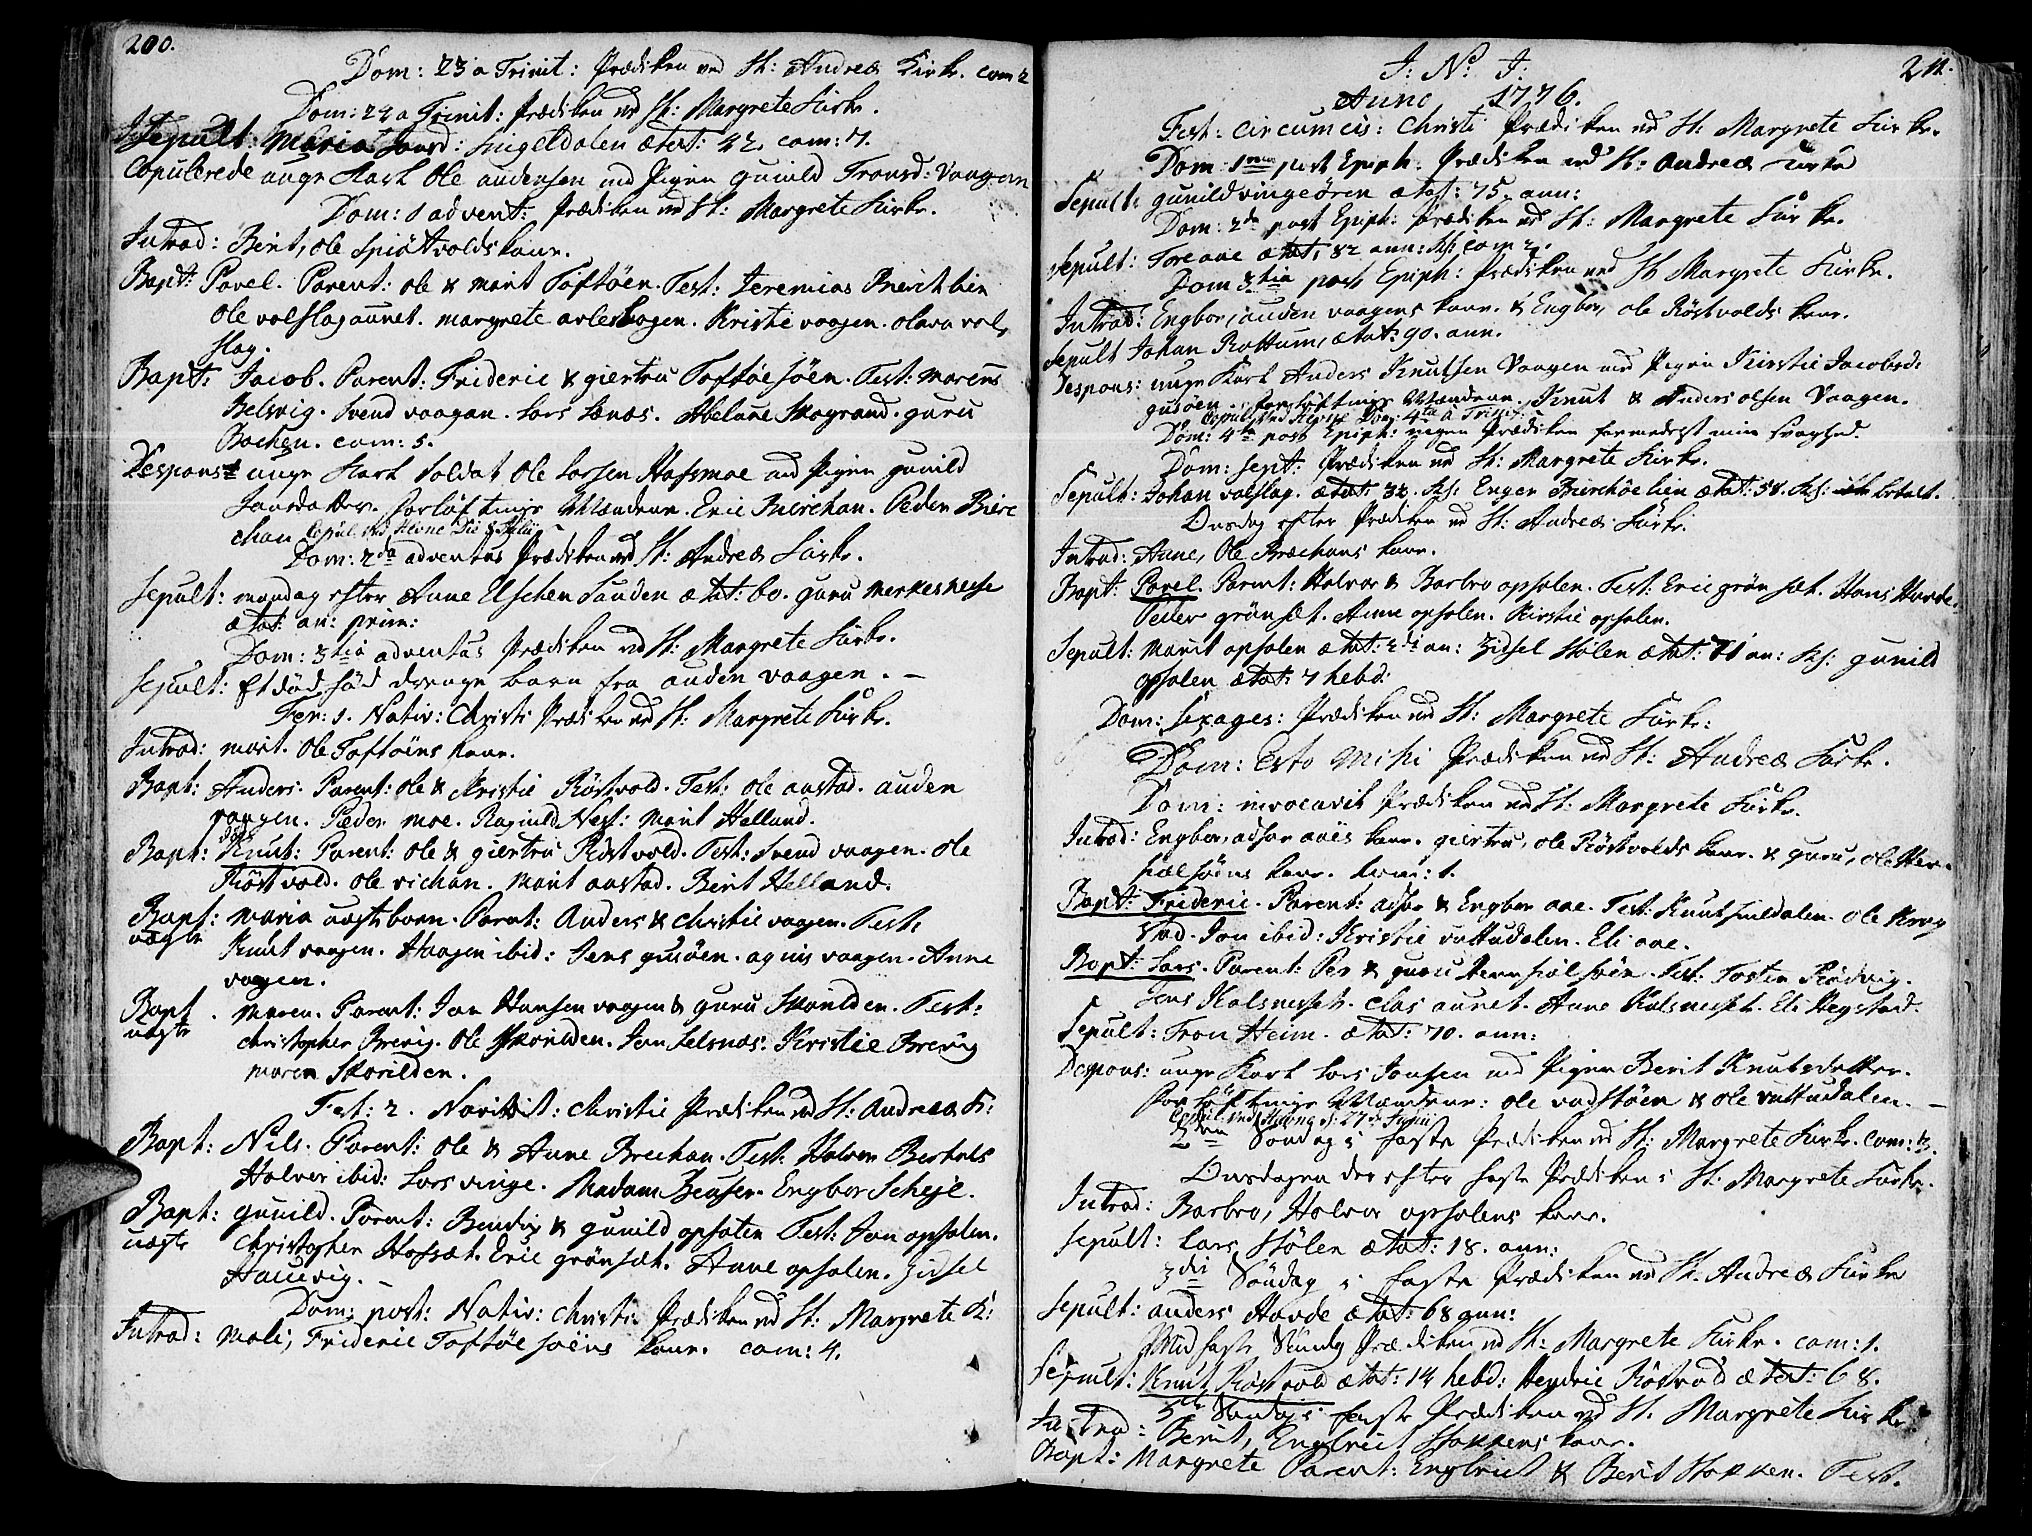 200.
Dom: 23 a Trinit: Prædiken ved St: Andreæ Kirke. com 2
Dom: 24 a Trinit: Prædiken ved St: Margrete Kirke.
Sepult: Maria Ingeldalen ætat: 42. com: 7.
Copulerede unge Karl Ole audensen med Pigen gunild Tronsd: Vaagen
Dom: 1 advent: Prædiken ved St: Margrete Kirke.
Introd: Berit, ole Spiøtvolds kone.
Bapt: Pavel. Parent: ole & marit Toftøen. Test: Jeremias
ole valslagaunet. margrete Kristie vaagen. olava val
slag.
Bapt: Jacob. Parent: Frideric & giertru Toftøesøen. Test: morten
Belsvig. Svend vaagan. Lars Lenæs. Abelune Skogrand. guru
Bachen. com: 5.
Despons: unge Karl Soldat Ole Larsen Hafsmoe med Pigen gunild
Larsdatter. Forløftnings Mændene. Eric Bierchan. Peder Bier
chan Copul: ved Hevne
Dom: 2da adventus Prædiken ved St: Andreæ Kirke.
Sepult: mandag efter Anne Elschen Sanden ætat: 60. guru merkesnesse
ætat: an: prim:
Dom: 3tia adventus Prædiken ved St: Margrete Kirke.
Sepult: Et død fød drenge barn fra auden vaagen. –
Fer: 1. Nativ: Christi Prædiken ved St: Margrete Kirke.
Introd: marit. Ole Toftøens kone.
Bapt: Anders. Parent: ole & Kristie Röstvold. Test: ole austad. auden
vaagen. Peder moe. Ragnild Nest: Marit Helland.
Bapt: Knut: Parent: ole & giertru Röstvold. Test: Svend vaagen. ole
Röstvold. ole vichan. Marit aastad. Berit Helland.
Bapt: maria uægte barn. Parent: Anders & christie vaagen. Test:
uægte Knut vaagen. Haagen ibid: Jens gusöen. agnis vaagen. Anne
vaagen.
Bapt. Maren. Parent: Jon Hansen vaagen & guru Skarilden. Test:
uægte christopher Brevig. Ole Skarilden. Jon Selsnæs: Kristie Brevig
maren Skarilden.
Fer: 2. Nativit: christie Prædiken ved St: Andreæ K:
Bapt: Nils. Parent: Ole & Anne Brechan. Test: Halvor Berkels
Halvor ibid: Lars vinge. Madam Engbor Scheje.
Bapt: gunild. Parent: Bendix & gunild opsalen Test: Jon opsalen.
uægte Christopher Hafsæt. Eric grönset. Anne opsalen. Zidsel
Haucvig. –
Dom: post: Nativ: Christi Prædiken ved St: Margrete K:
Introd: Mali, Frideric Toftøesøens kone. com: 4.
J: N: J:
211.
Anno 1776.
Fest: circumcis: Christi Prædiken ved St: Margrete Kirke.
Dom: 1ma post Epiph: Prædiken ved St: Andreæ Kirke
Sepult: gunild vingeören ætat: 75. ann:
Dom: 2da post Epiph: Prædiken ved St: Margrete Kirke.
Sepult: Tore aae ætat: 82 ann: com 2.
Dom 3tia post Epiph: Prædiken ved St Margrete Kirke.
Introd: Engbor, auden vaagens kone. & Engbor, ole Röstvolds kone.
Sepult Johan Rottum, ætat: 90. ann.
Despons: unge Karl Anders Knutsen Vaagen med Pigen Kirstie Jacobsd:
gusöen. Forløftnings Mændene. Knut & Anders olsen Vaagen.
Copul: ved Hevne Dom: 4ta a Trinit:
Dom: 4ta post Epiph: ingen Prædiken formedelst min svaghed.
Dom: Sept: Prædiken ved St: Margrete Kirke.
Sepult: Johan valslag. ætat: 32. Enger Bierchöelien ætat: 58.
Onsdag efter Prædiken ved St: Andreæ Kirke.
Introd: Anne, Ole Brechans kone.
Bapt: Pavel. Parent: Halvor & Barbro opsalen. Test: Eric grönset. Hans Hovde.
Peder grönset. Anne opsalen. Kirstie opsalen.
Sepult: Marit opsalen ætat: an: Zidsel Stölen ætat: 71 an: gunild
opsalen ætat: 7 hebd:
Dom: Sexages: Prædiken ved St: Margrete Kirke:
Dom: Esto Mihi Prædiken ved St: Andreæ Kirke.
Dom: invocavit Prædiken ved St: Margrete Kirke.
Introd: Engbor, aaes kone. giertru, ole Röstvolds kone. & guru,
kone. com: 1.
Bapt: Frideric. Parent: & Engbor aae. Test: Knut ole Krog
stad. Jon ibid: Kristie vuttudalen. Eli aae.
Bapt: Lars. Parent: Per & guru Test: Tosten Rödvig.
Jens Kalsnesset. clas aunet. Anne Kalsnesset. Eli Hegstad.
Sepult: Tron Heim. ætat: 70. ann:
Despons: unge Karl Lars Jonsen med Pigen Berit Knutsdatter.
Forløftnings Mændene: ole vadstöen & ole vuttudalen. –
Copul: ved Hevne d: 27de Junii
2den Söndag i Faste Prædiken ved St: Margrete Kirke. com: 3.
Onsdagen der efter Faste Prædiken i St: Margrete Kirke.
Introd: Barbro, Halvor opsalens kone.
Sepult: Lars Stölen ætat: 18. ann:
3die Söndag i Faste Prædiken ved St: Andreæ Kirke
Sepult: anders Hovde ætat: 68 ann:
Midfaste Söndag Prædiken ved St: Margrete Kirke. com: 1.
Sepult: Knut Röstvold ætat: 14 hebd: Hendric Röstvold ætat: 68.
5te Söndag i Faste Prædiken ved St. Margrete Kirke
Introd: Berit, Engbrict Stokkens kone.
Bapt: Margrete Parent: Engbrict & Berit Stokken. Test.